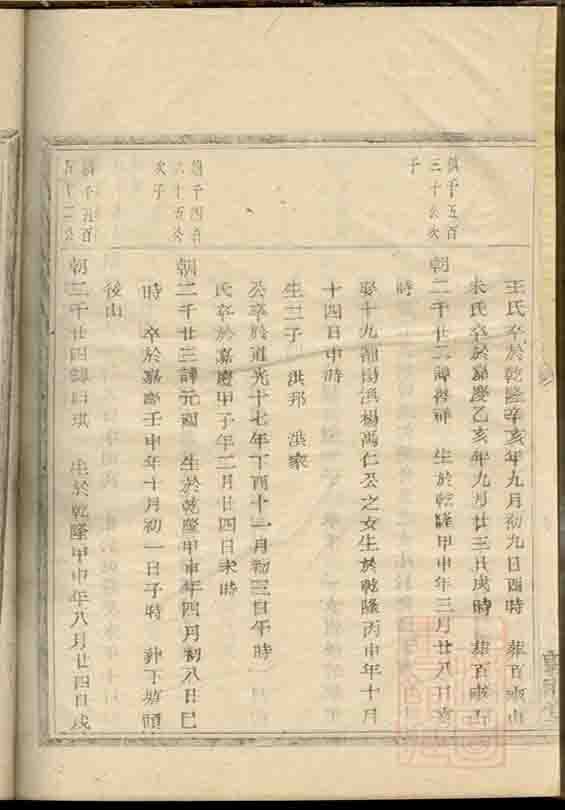 王氏卒於乾隆辛亥年九月初九日酉時 葬百束山
朱氏卒於嘉慶乙亥年九月廿三日戌時 葬百束山
鎮千五百
三十公次
子
朝二千廿二諱得祥 生於乾隆甲申年三月廿八日
時
娶十九都楊浜楊萬仁公之女生於乾隆丙申年十月
十四日申時
生二子 洪邦 洪家
公卒於道光十七年丁酉十一月初三日午時
氏卒於嘉慶甲子年二月廿四日未時
鎮千四百
六十五公
次子
朝二千廿三諱元 生於乾隆甲申年四月初八日巳
時 卒於嘉慶壬申年十月初一日子時 葬下 頭
後山
鎮千五百
公
朝二千廿四諱曰琪 生於乾隆甲申年八月廿四日戌